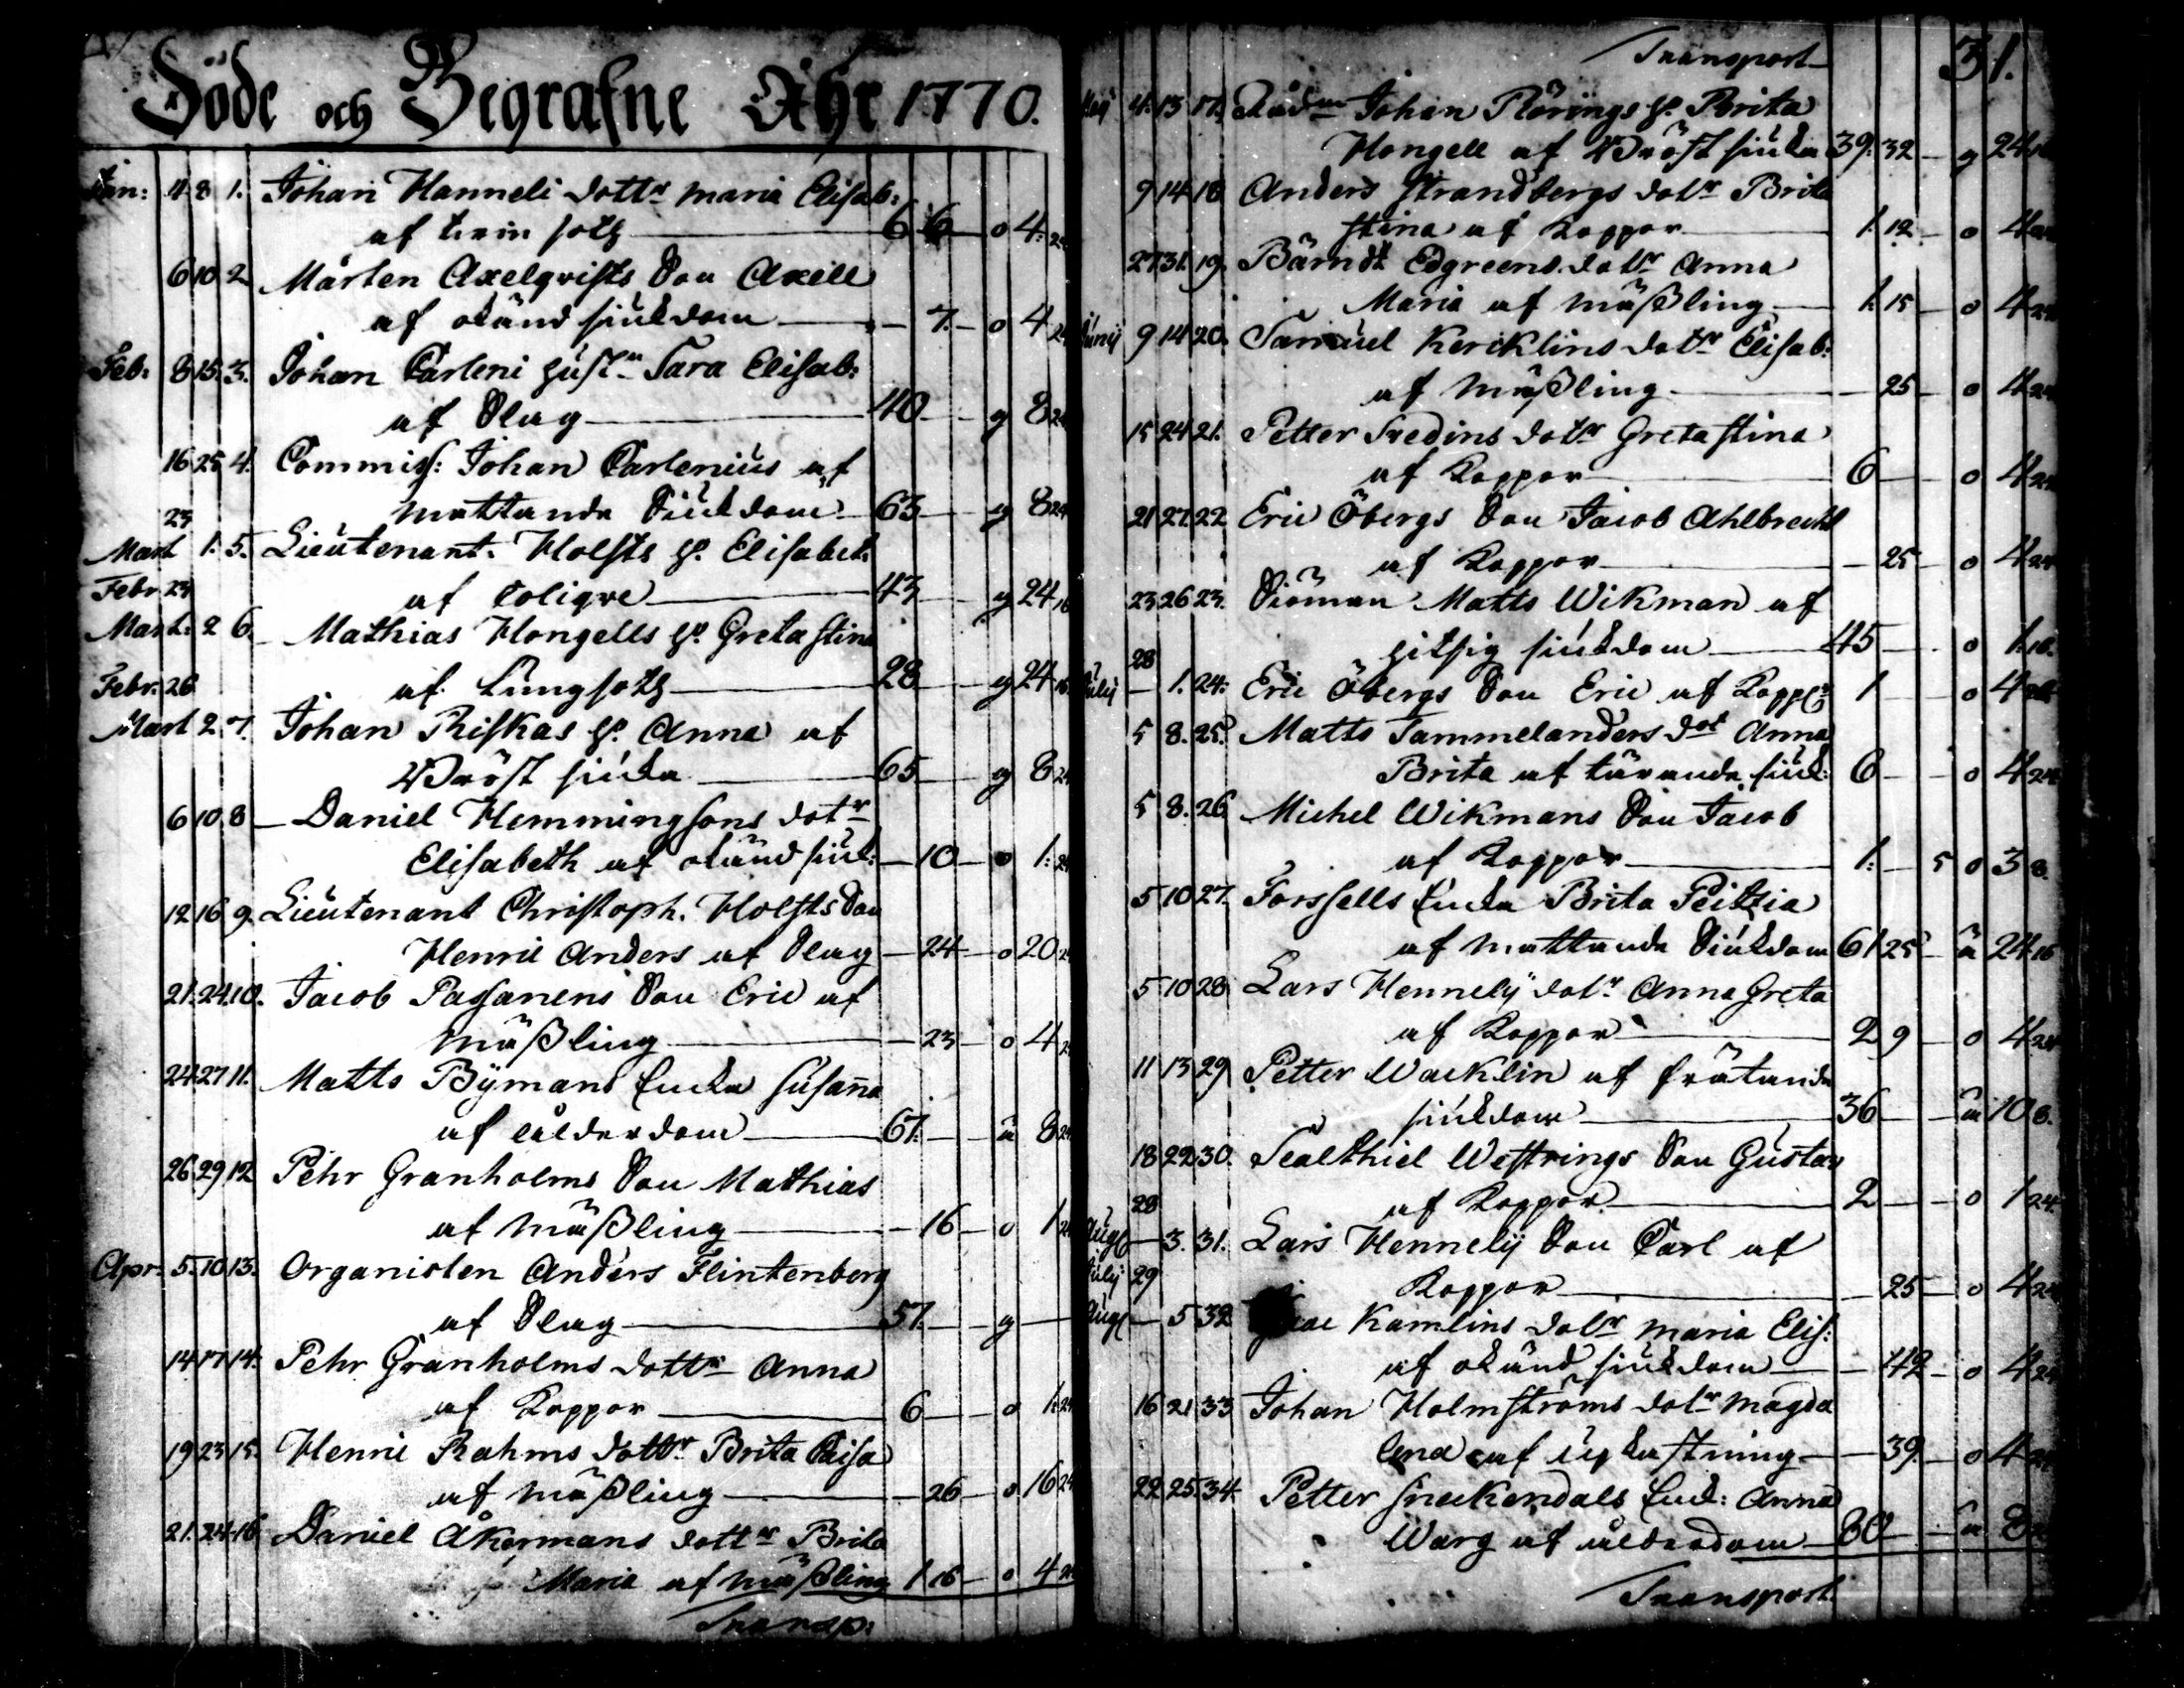 Döde och Begrafne Åhr 1770.
Jan: 4. 8 1. Johan Hanneli dottr Maria Elisab:
af tvin sotg 6 6 o 4: 24
6 10 2 Mårten Axelqvists Son Axell
af okänd siukdom 7. o 4 24
Feb: 8 15. 3. Johan Carleni hust. Sara Elisab:
af Slag 40 g 8 24
16 25 4. Commiss: Johan Carlenius af
mattande Siukdom 63 g 8 24
23
Mart 1. 5. Lieutenant. Holsts h. Elisabet:
Febr 23 af Colique 43 g 24 16
Mart: 2 6. Mathias Hongells h. Greta Stina
Febr. 26 af Lungsotg 28 g 24 16
Mart 2 7. Johan Riskas h. Anna af
Bröst siuka 65 g 8 24
6 10 8 Daniel Hemmingsons dotr
Elisabeth af okänd siuk: 10 o 1: 24
12 16 9. Lieutenant Christoph. Holsts Son
Henric Anders af Slag 24 o 20 24
21. 24. 10. Jacob Passanens Son Eric af
mäßling 23 o 4 24
24 27 11. Matts Bÿmans Encka Susanna
af ålderdom 67. ä 8 24
26 29 12 Pehr Granholms Son Mathias
af mäßling 16 o 1 24
Apr. 5. 10 13. Organisten Anders Flintenberg
af Slag 57. g
14 17 14. Pehr Granholms dottr Anna
af Koppor 6 o 1: 24
19 23 15. Henric Rahms dottr Brita Caisa
af mäßling 26 o 16 24
21. 24. 16. Daniel Åkermans dottr Brita
Maria af mäßling 1 16 o 4 24
Transp:
Transport 31.
Maj 4. 13 17. Rådm Johan Rörings h. Brita
Hongell af Bröst siuka 39. 32 g 24 16
9 14 18 Anders Strandbergs dotr Brita
Stina af Koppor 1. 12. o 4 24
27 31. 19. Bärndt Edgreens dotr Anna
Maria af mäßling 1. 15 o 4 24
Junij 9 14 20. Samuel Kericklins dotr Elisab:
af mäßling 25 o 4 24
15 24 21. Petter Fredins dotr Greta Stina
af Koppor 6 o 4 24
21 27 22 Eric Öbergs Son Jacob Ahlbrecht
af Koppor 25 o 4 24
23 26 23. Siöman Matts Wikman af
hitsig siukdom 45 o 1. 16.
28
Julij 1. 24. Eric Öbergs Son Eric af Kopp: 1 o 4 24
5 8. 25. Matts Tammelanders dot Anna
Brita af tärande siuk: 6 o 4 24
5 8. 26 Michel Wikmans Son Jacob
af Koppor 1. 5 o 3 8.
5 10 27. Forssells Encka Brita Peitzia
af mattande Siukdom 61 25 ä 24 16
5 10 28 Lars Hennelÿ dotr Anna Greta
af Koppor 2 9 o 4 24
11 13 29 Petter Wacklin af frätande
siukdom 36 ä 10 8.
18 22 30. Sealthiel Westrings Son Gustav
28 af Koppor 2 o 1 24
Aug 3. 31. Lars Hennelÿ Son Carl af
Julij 29 Koppor 25 o 4 24
Aug 5 32 Kamlins dotr Maria Elis:
af okänd siukdom 42 o 4 24
16 21 33 Johan Holmströms dotr Magda
lena af upkastning 39. o 4 24
22 25. 34. Petter Sneckendals Enck: Anna
Warg af ålderdom 80 ä 8
Transport.